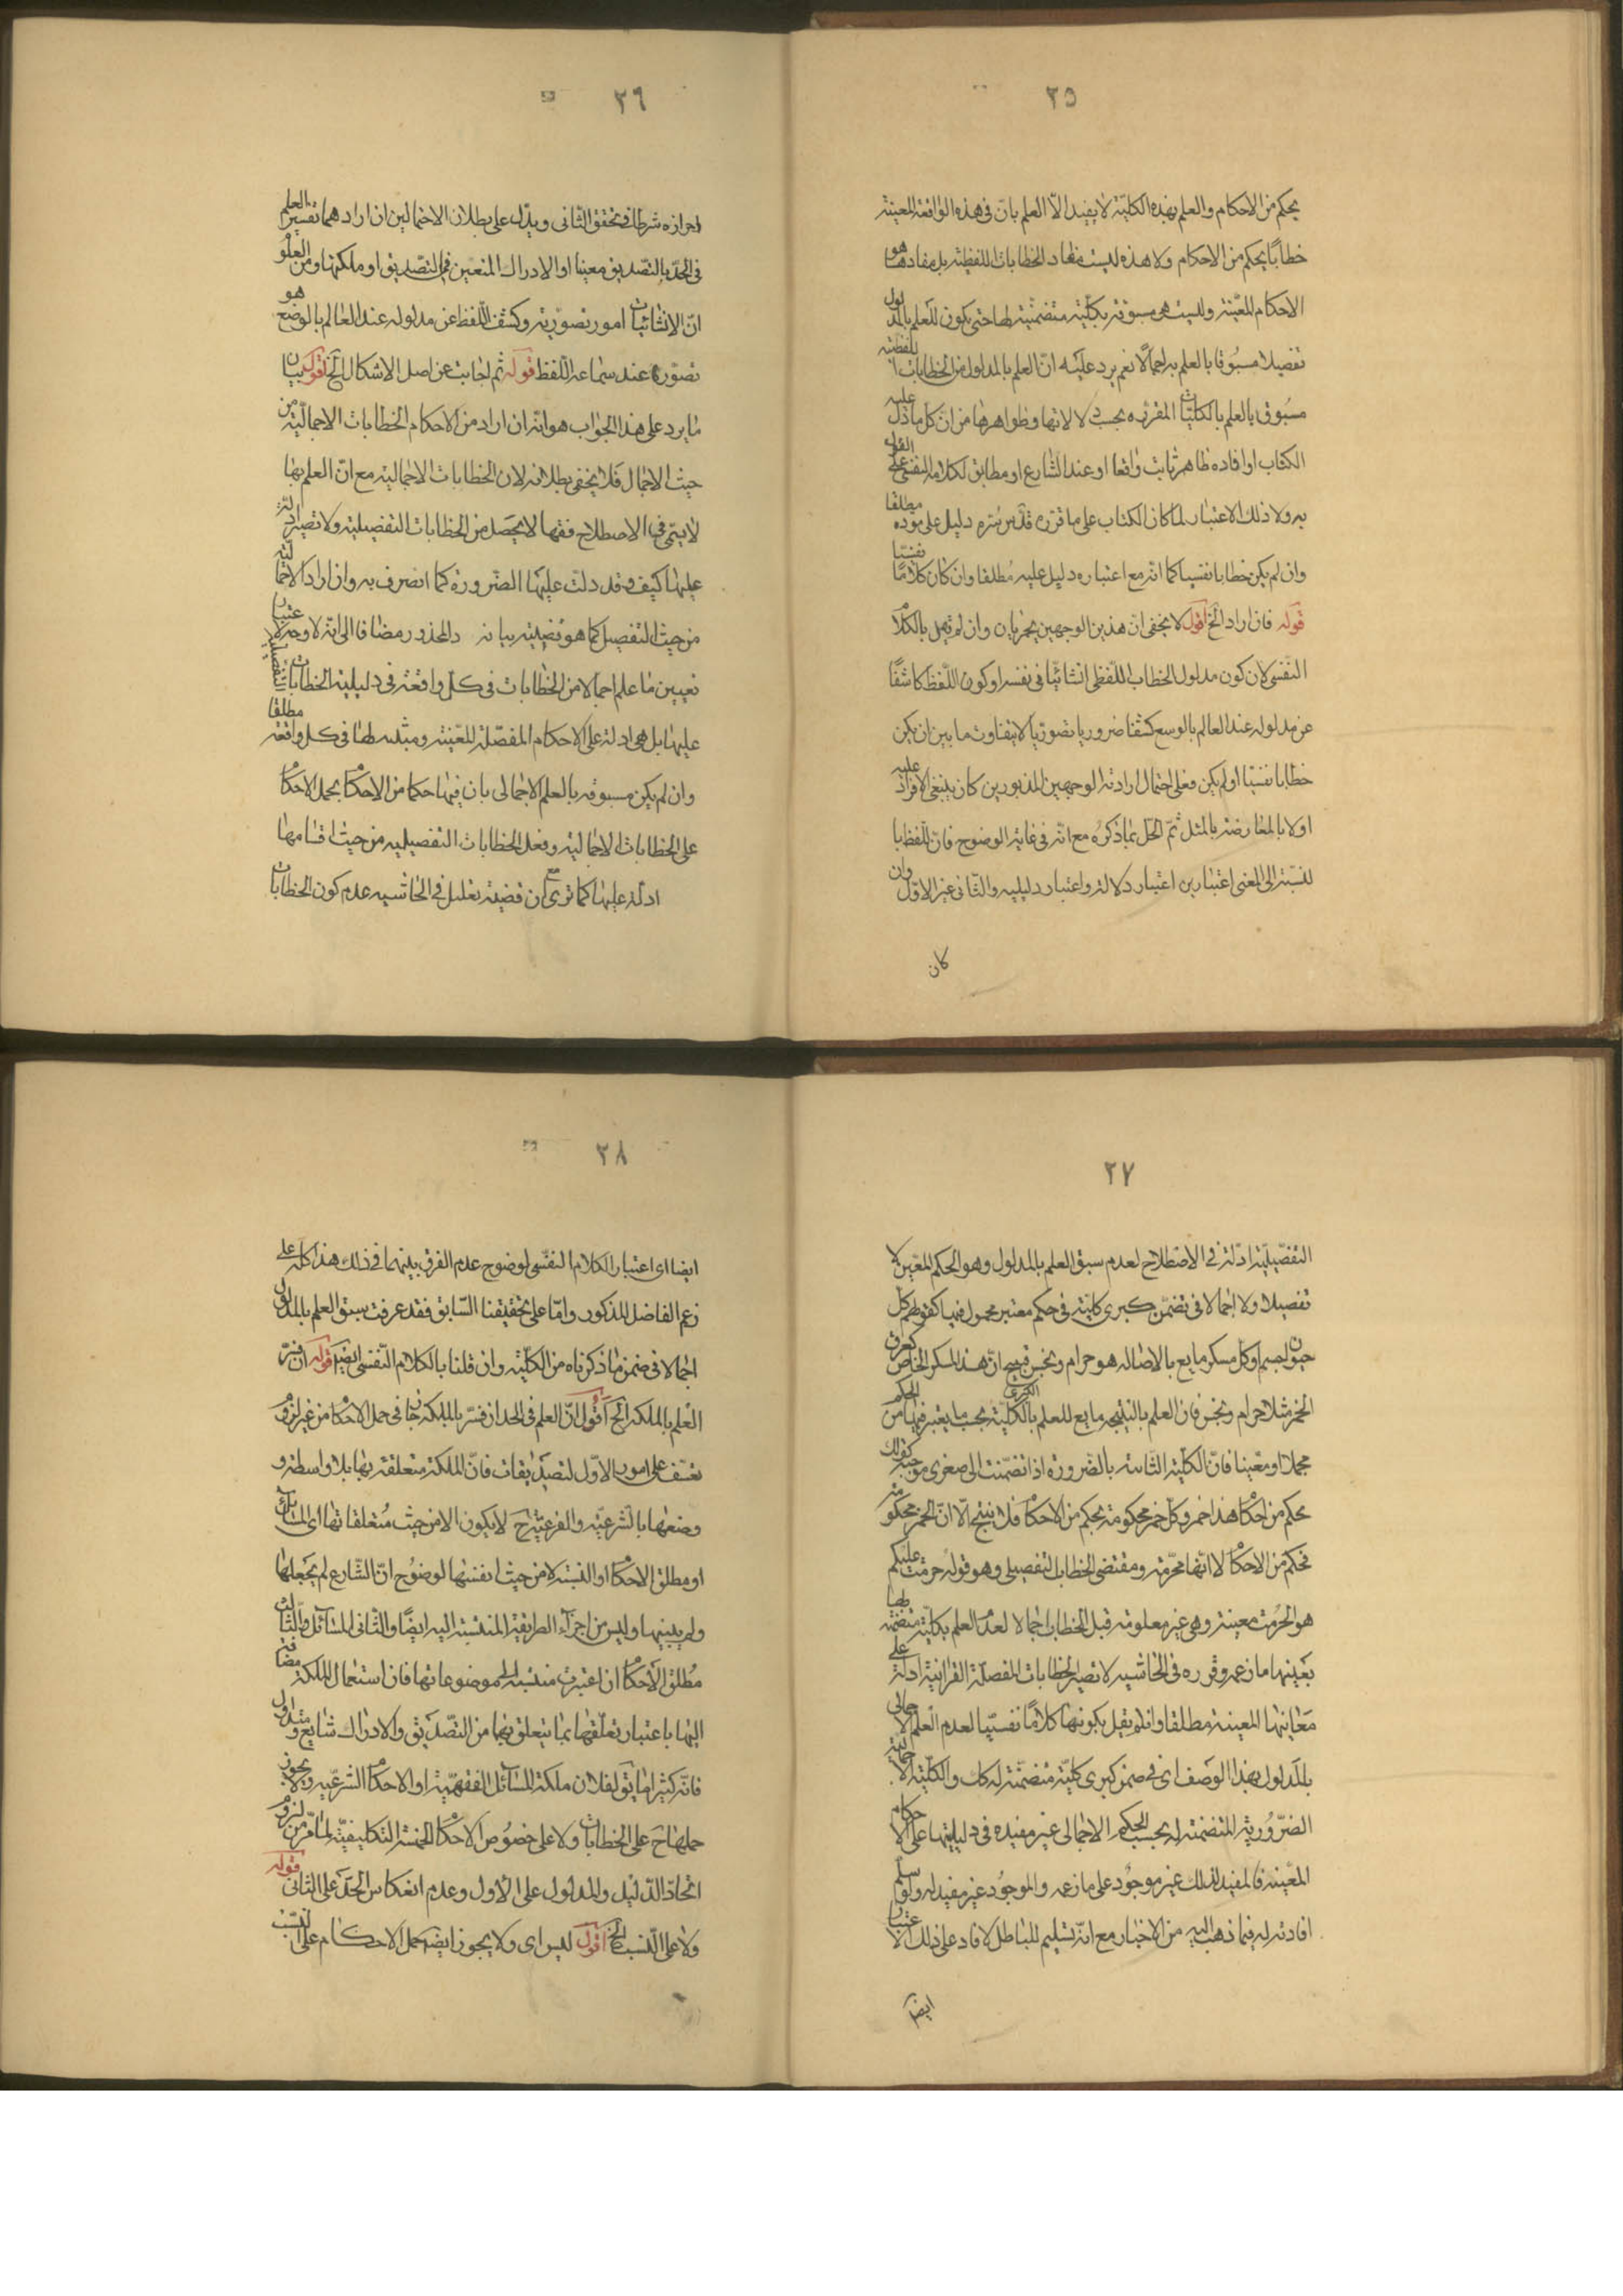 ٣٥
بحكم من الاحكام والعلم بهذه الكلية لا يفيد الا العلم بان فى هذه الواقعة المعينة
خطابا بحكم من الاحكام ولا هذه ليست مفاد الخطابات اللفظية بل مفادها هو
الاحكام المعينة وليست هى مسبوقة بكلية متضمنة لها حتى يكون للعلم بالمدلول
تفصيلا مسبوقا بالعلم به اجمالا نعم يرد عليه ان العلم بالمدلول من الخطابات اللفظية
مسبوق بالعلم بالكليات المقررة بحسب دلالاتها وظواهرها من ان كل ما دل عليه
الكتاب او افاده ظاهر ثابت واقعا او عند الشارع او مطابق لكلامه النفسى القول على
به ولا ذلك الاعتبار لما كان الكتاب على ما قرره قدس سره دليل على موده مطلقا
وان لم يكن خطابا نفسيا كما انه مع اعتباره دليل عليه مطلقا وان كان كلاما نفسيا
قوله فان اراد الخ اقول لا يخفى ان هذين الوجهين يجريان وان لم نقل بالكلام
النفسى لان كون مدلول الخطاب اللفظى انشائيا فى نفسه او كون اللفظ كاشفا
عن مدلوله عند العالم بالوسع كشفا ضروريا تصوريا لا يتفاوت ما بين ان يكن
خطابا نفسيا او لم يكن فعلى احتمال ارادته الوجهين المذبورين كان ينبغى الافراد عليه
اولا بالمعارضة بالمثل ثم الحل بما ذكره مع انه فى غاية الوضوح فان للفظ با
لنسبة الى المعنى اعتبارين اعتبار دلالة واعتبار دليلية والثانى غير الاول وان
كان
٣٦
احرازه شرطا فى تحقق الثانى ويدل على بطلان الاحتمالين ان اراد هما تفسير العلم
فى الحد بالتصديق معينا او الادراك المتعين فى التصديق او ملكتها ومن المعلوم
ان الانشائيات امور تصورية وكشف اللفظ عن مدلوله عند العالم بالوضع هو
تصوره عند سماعه اللفظ قوله ثم اجابت عن اصل الاشكال الخ اقول بيان
ما يرد على هذا الجواب هو انه ان اراد من الاحكام الخطابات الاجمالية من
حيث الاجمال فلا يخفى بطلانه لان الخطابات الاجمالية مع ان العلم بها
لا يسمى فى الاصطلاح فقها لا يحصل من الخطابات التفصيلية ولا تصير ادلة
عليها كيف وقد دلت عليها الضرورة كما اعترف به وان اراد الاجمالية
من حيث التفصيل كما هو قضية بيانه دالمحذور مضافا الى انه لا وجه لاعتبار
تعيين ما علم اجمالا من الخطابات فى كل واقعة فى دليلية الخطابات التفصيلية
عليها بل هى ادلة على الاحكام المفصلة المعينة ومثبتة لها فى كل واقعة مطلقا
وان لم يكن مسبوقة بالعلم الاجمالى بان فيها حكما من الاحكام بحمل الاحكام
على الخطابات الاجمالية وفعل الخطابات التفصيلية من حيث اقسامها
ادلة عليها كما ترى مع ان قضية تعليل فى الحاشيه عدم كون الخطابات
٣٧
التفصيلية ادلة فى الاصطلاح لعدم سبق العلم بالمدلول وهو الحكم المعين لا
تفصيلا ولا اجمالا فى تضمن كبرى كلية فى حكم معتبر محمول فيها كقولهم كل
حيوان جسم او كل مسكر مايع بالاصالة هو حرام ونجس فيهم ان هذا المسكر الخاص كعرق
الخمر مثلا حرام ونجس فان العلم بالنتيجه مايع للعلم بالكلية الكبرى بحسب ما يعتبر فيها من الحكم
مجملا او معينا فان الكلية الثابتة بالضرورة اذا تضمنت الى صغرى موجبة كقولك
بحكم من احكام هذا خمر وكل خمر محكومة بحكم من الاحكام فلا ينتج الا ان الخمر محكومة
بحكم من الاحكام لا انها محرمة ومقتضى الخطاب التفصيلى وهو قوله حرمت عليكم
هو الحرمت معينة وهى غير معلومة قبل الخطاب اجمالا لعدم العلم بكلية متضمنة لها
بعينها ما زعمه وقرره فى الحاشيه لا تصير الخطابات المفصلة القرانية ادلة على
معانيها المعينة مطلقا وان لم يقل بكونها كلاما نفسيا لعدم العلم الاجمالى
بالمدلول بهذا الوصف اى فى ضمن كبرى كلية متضمنة له كان والكلية الاجمالية
الضرورية المتضمنة له بحسب الحكم الاجمالى غير مفيدة فى دليليتها على الاحكام
المعينة فالمفيد لذلك غير موجود على ما زعمه والموجود غير مفيد له ولو سلم
افادته له فيما ذهب اليه من الاخبار مع انه تسليم للباطل لافاد على ذلك الاعتبار
ايضا
٣٨
ايضا اى اعتبار الكلام النفسى لوضوح عدم الفرق بينهما فى ذلك هذا كله على
زعم الفاضل المذكور واما على تحقيقنا السابق فقد عرفت سبق العلم بالمدلول
اجمالا فى ضمن ما ذكرناه من الكلية وان قلنا بالكلام النفسى ايضا قوله ان فسر
العلم بالملكة الخ اقول ان العلم فى الحد ان فسر بالملكة جاز فى حمل الاحكام من غير لزوم
تعسف على امور الاول التصديقات فان الملكة متعلقة بها بلا واسطة و
وضعها بالشرعيه والفرعية ح لا يكون الا من حيث متعلقاتها اى المسائل
او مطلق الاحكام او النسبة لا من حيث انفسها لوضوح ان الشارع لم يجعلها
ولم يبينها وليس من اجزاء الطريقة المنتسبة اليه ايضا والثانى المسائل والثالث
مطلق الاحكام ان اعتبرت منتسبة الى موضوعاتها فان استعمال الملكة مضافة
اليها باعتبار تعلقها بما يتعلق بها من التصديق والادراك شايع ومتداول
فانه كثيرا ما يق لفلان ملكة المسائل الفقهية او الاحكام الشرعيه ولا يجوز
حملها ح على الخطابات ولا على خصوص الاحكام الخمسة التكليفية لما مر من لزوم
اتحاد الدليل والمدلول على الاول وعدم انعكاس الحد على الثانى قوله
ولا على النسب الخ اقول ليس اى ولا يجوز ايضا حمل الاحكام على النسب